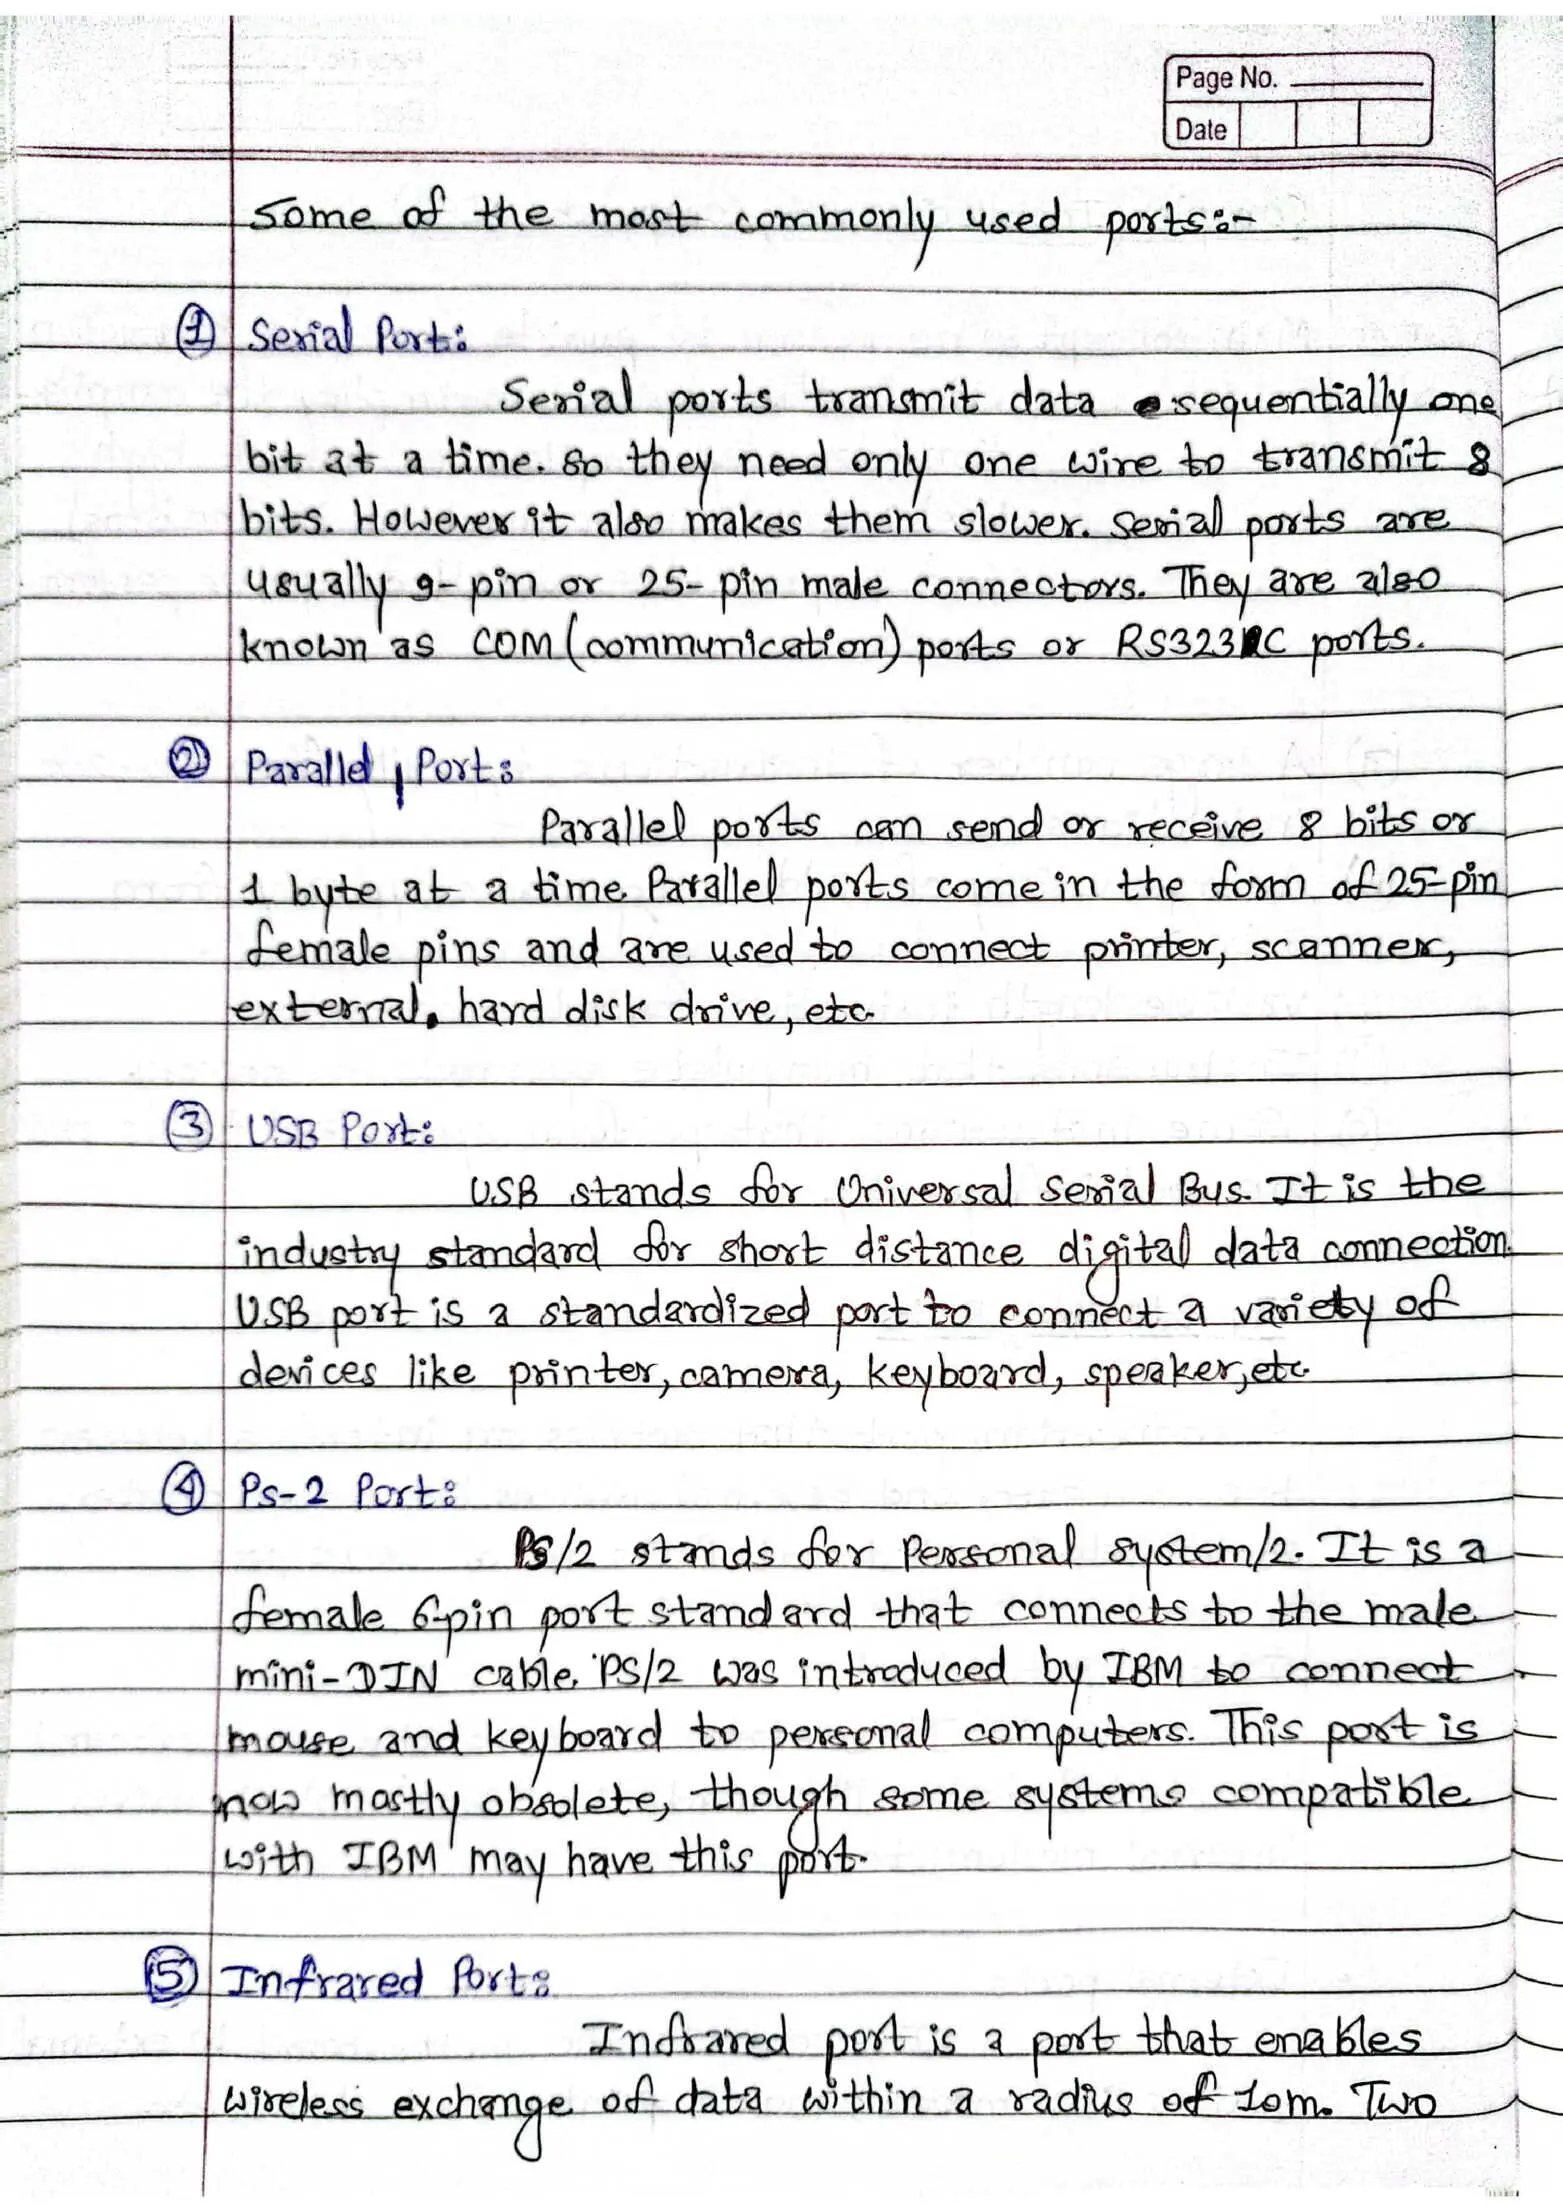 Page No.
Date
Some of the most commonly used ports:-
① Serial Port:
Serial ports transmit data sequentially one
bit at a time. So they need only one wire to transmit 8
bits. However it also makes them slower. Serial ports are
usually 9-pin or 25-pin male connectors. They are also
known as COM (communication) ports or RS323C ports.
② Parallel Port:
Parallel ports can send or receive 8 bits or
1 byte at a time. Parallel ports come in the form of 25-pin
female pins and are used to connect printer, scanner,
external hard disk drive, etc.
③ USB Port:
USB stands for Universal Serial Bus. It is the
industry standard for short distance digital data connection.
USB port is a standardized port to connect a variety of
devices like printer, camera, keyboard, speaker, etc.
④ Ps-2 Port:
PS/2 stands for Personal system/2. It is a
female 6-pin port standard that connects to the male
mini-DIN cable. PS/2 was introduced by IBM to connect
mouse and keyboard to personal computers. This port is
now mostly obsolete, though some systems compatible
with IBM may have this port.
⑤ Infrared Port:
Infrared port is a port that enables
wireless exchange of data within a radius of 10m. Two